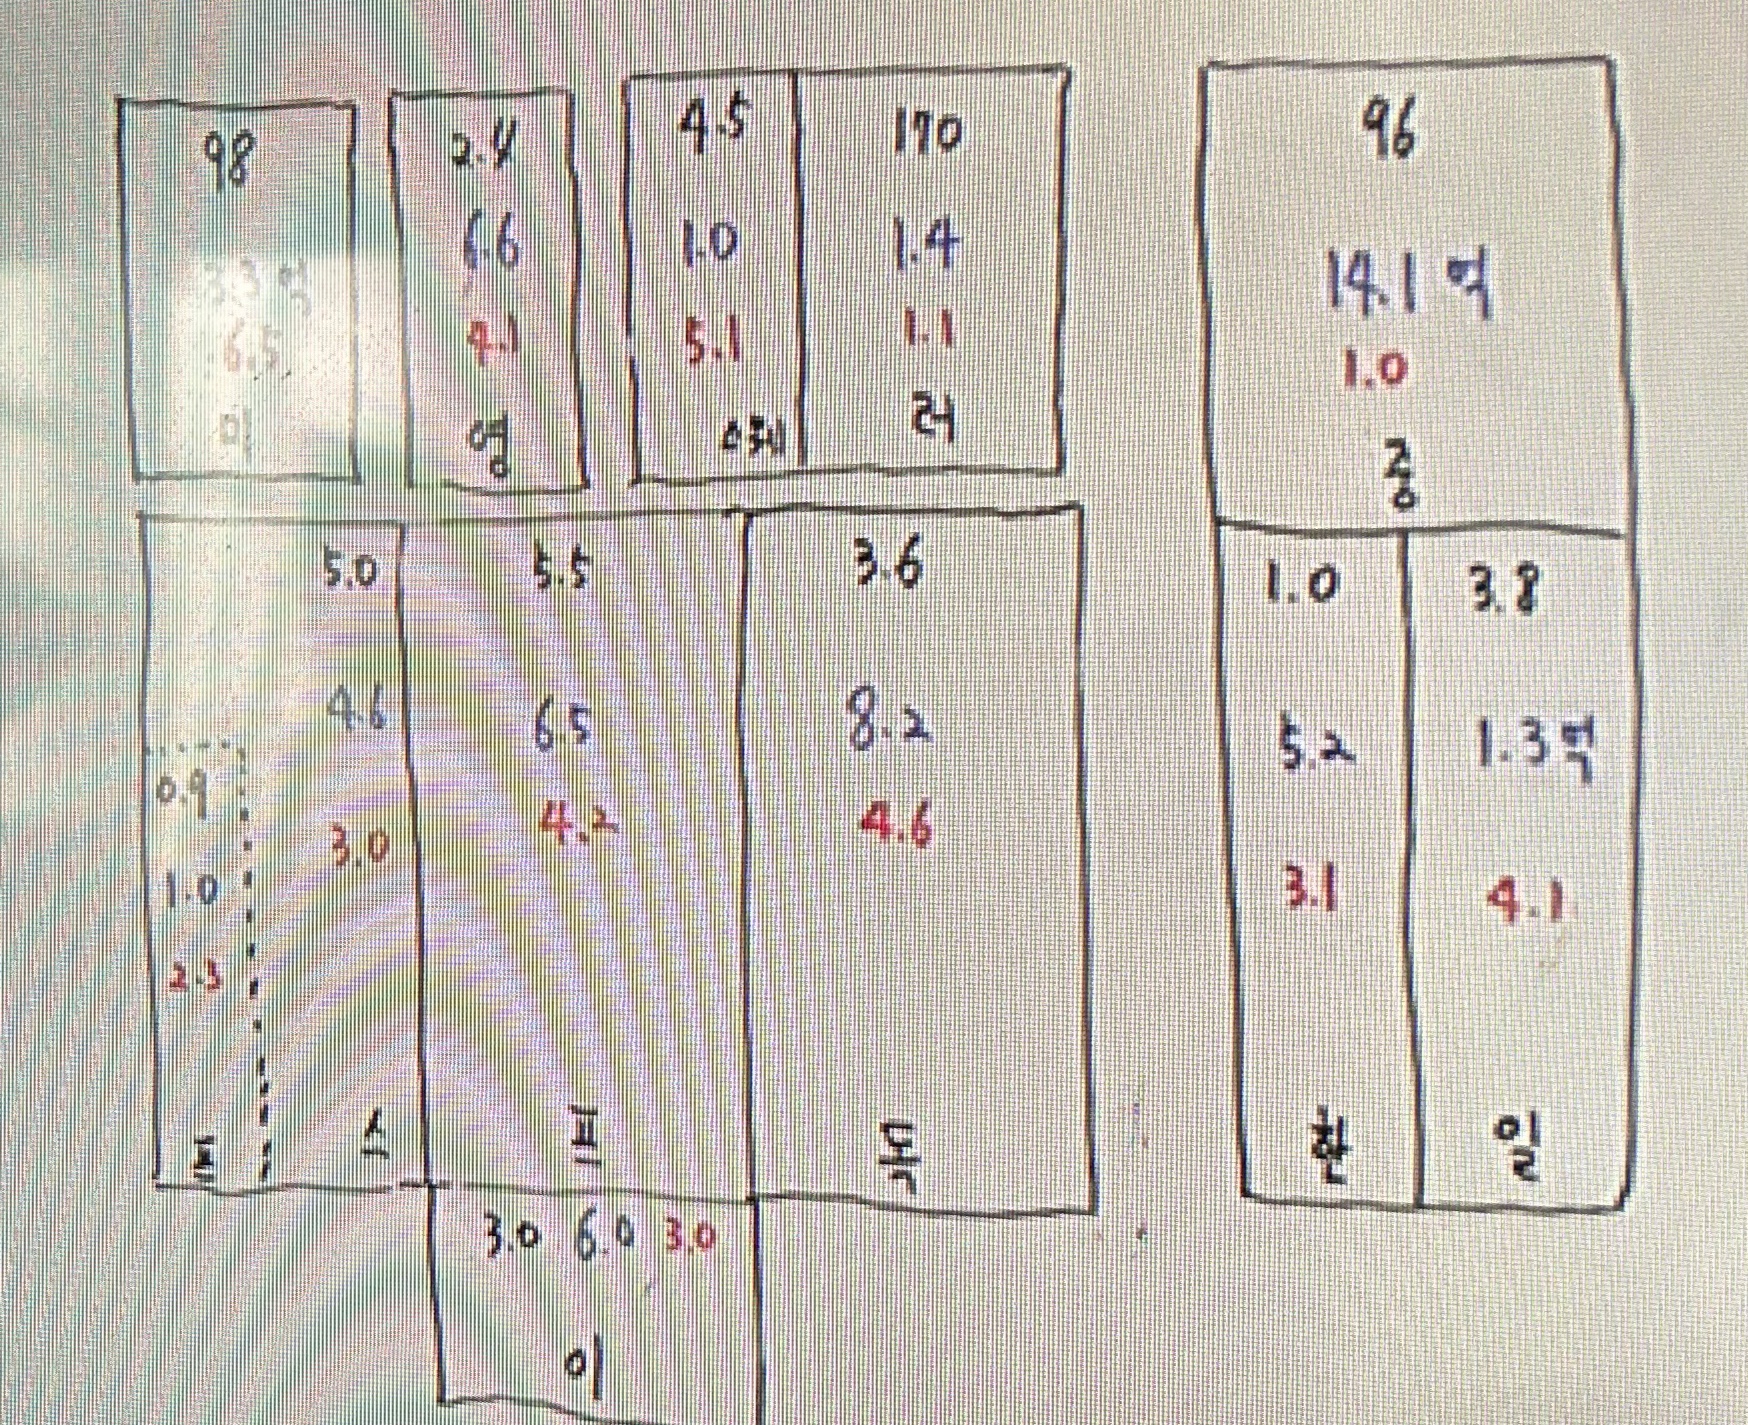 98
3.3억
6.5
미
2.4
6.6
4.1
영
4.5
1.0
5.1
170
1.4
1.1
러
96
14.1억
1.0
중
5.0
4.6
3.0
스
0.9
1.0
2.3
포
5.5
6.5
4.2
프
3.6
8.2
4.6
독
1.0
5.2
3.1
한
3.8
1.3억
4.1
일
3.0 6.0 3.0
이